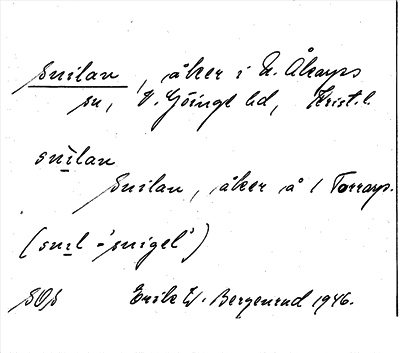 Snilan, åker i N. Åkarps
sn, V. Göinge hd, Krist. l.
snilan
Snilan, åker å 1 Torrarp.
(snil = 'snigel')
SOS Erik W. Bergenrud 1946.